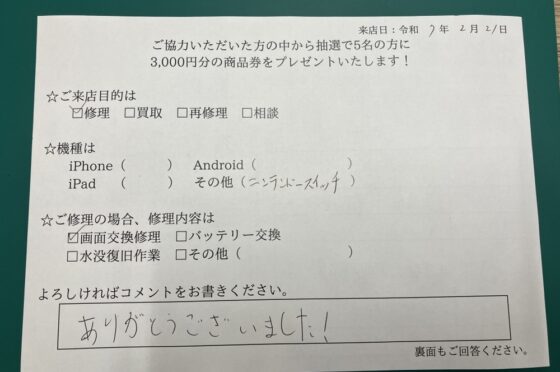 来店日：令和 7年 2月 21日
ご協力いただいた方の中から抽選で5名の方に
3,000円分の商品券をプレゼントいたします！
☆ご来店目的は
☑修理 □買取 □再修理 □相談
☆機種は
iPhone（ ） Android（ ）
iPad （ ） その他（ニンテンドースイッチ ）
☆ご修理の場合、修理内容は
☑画面交換修理 □バッテリー交換
□水没復旧作業 □その他（ ）
よろしければコメントをお書きください。
ありがとうございました！
裏面もご回答ください。